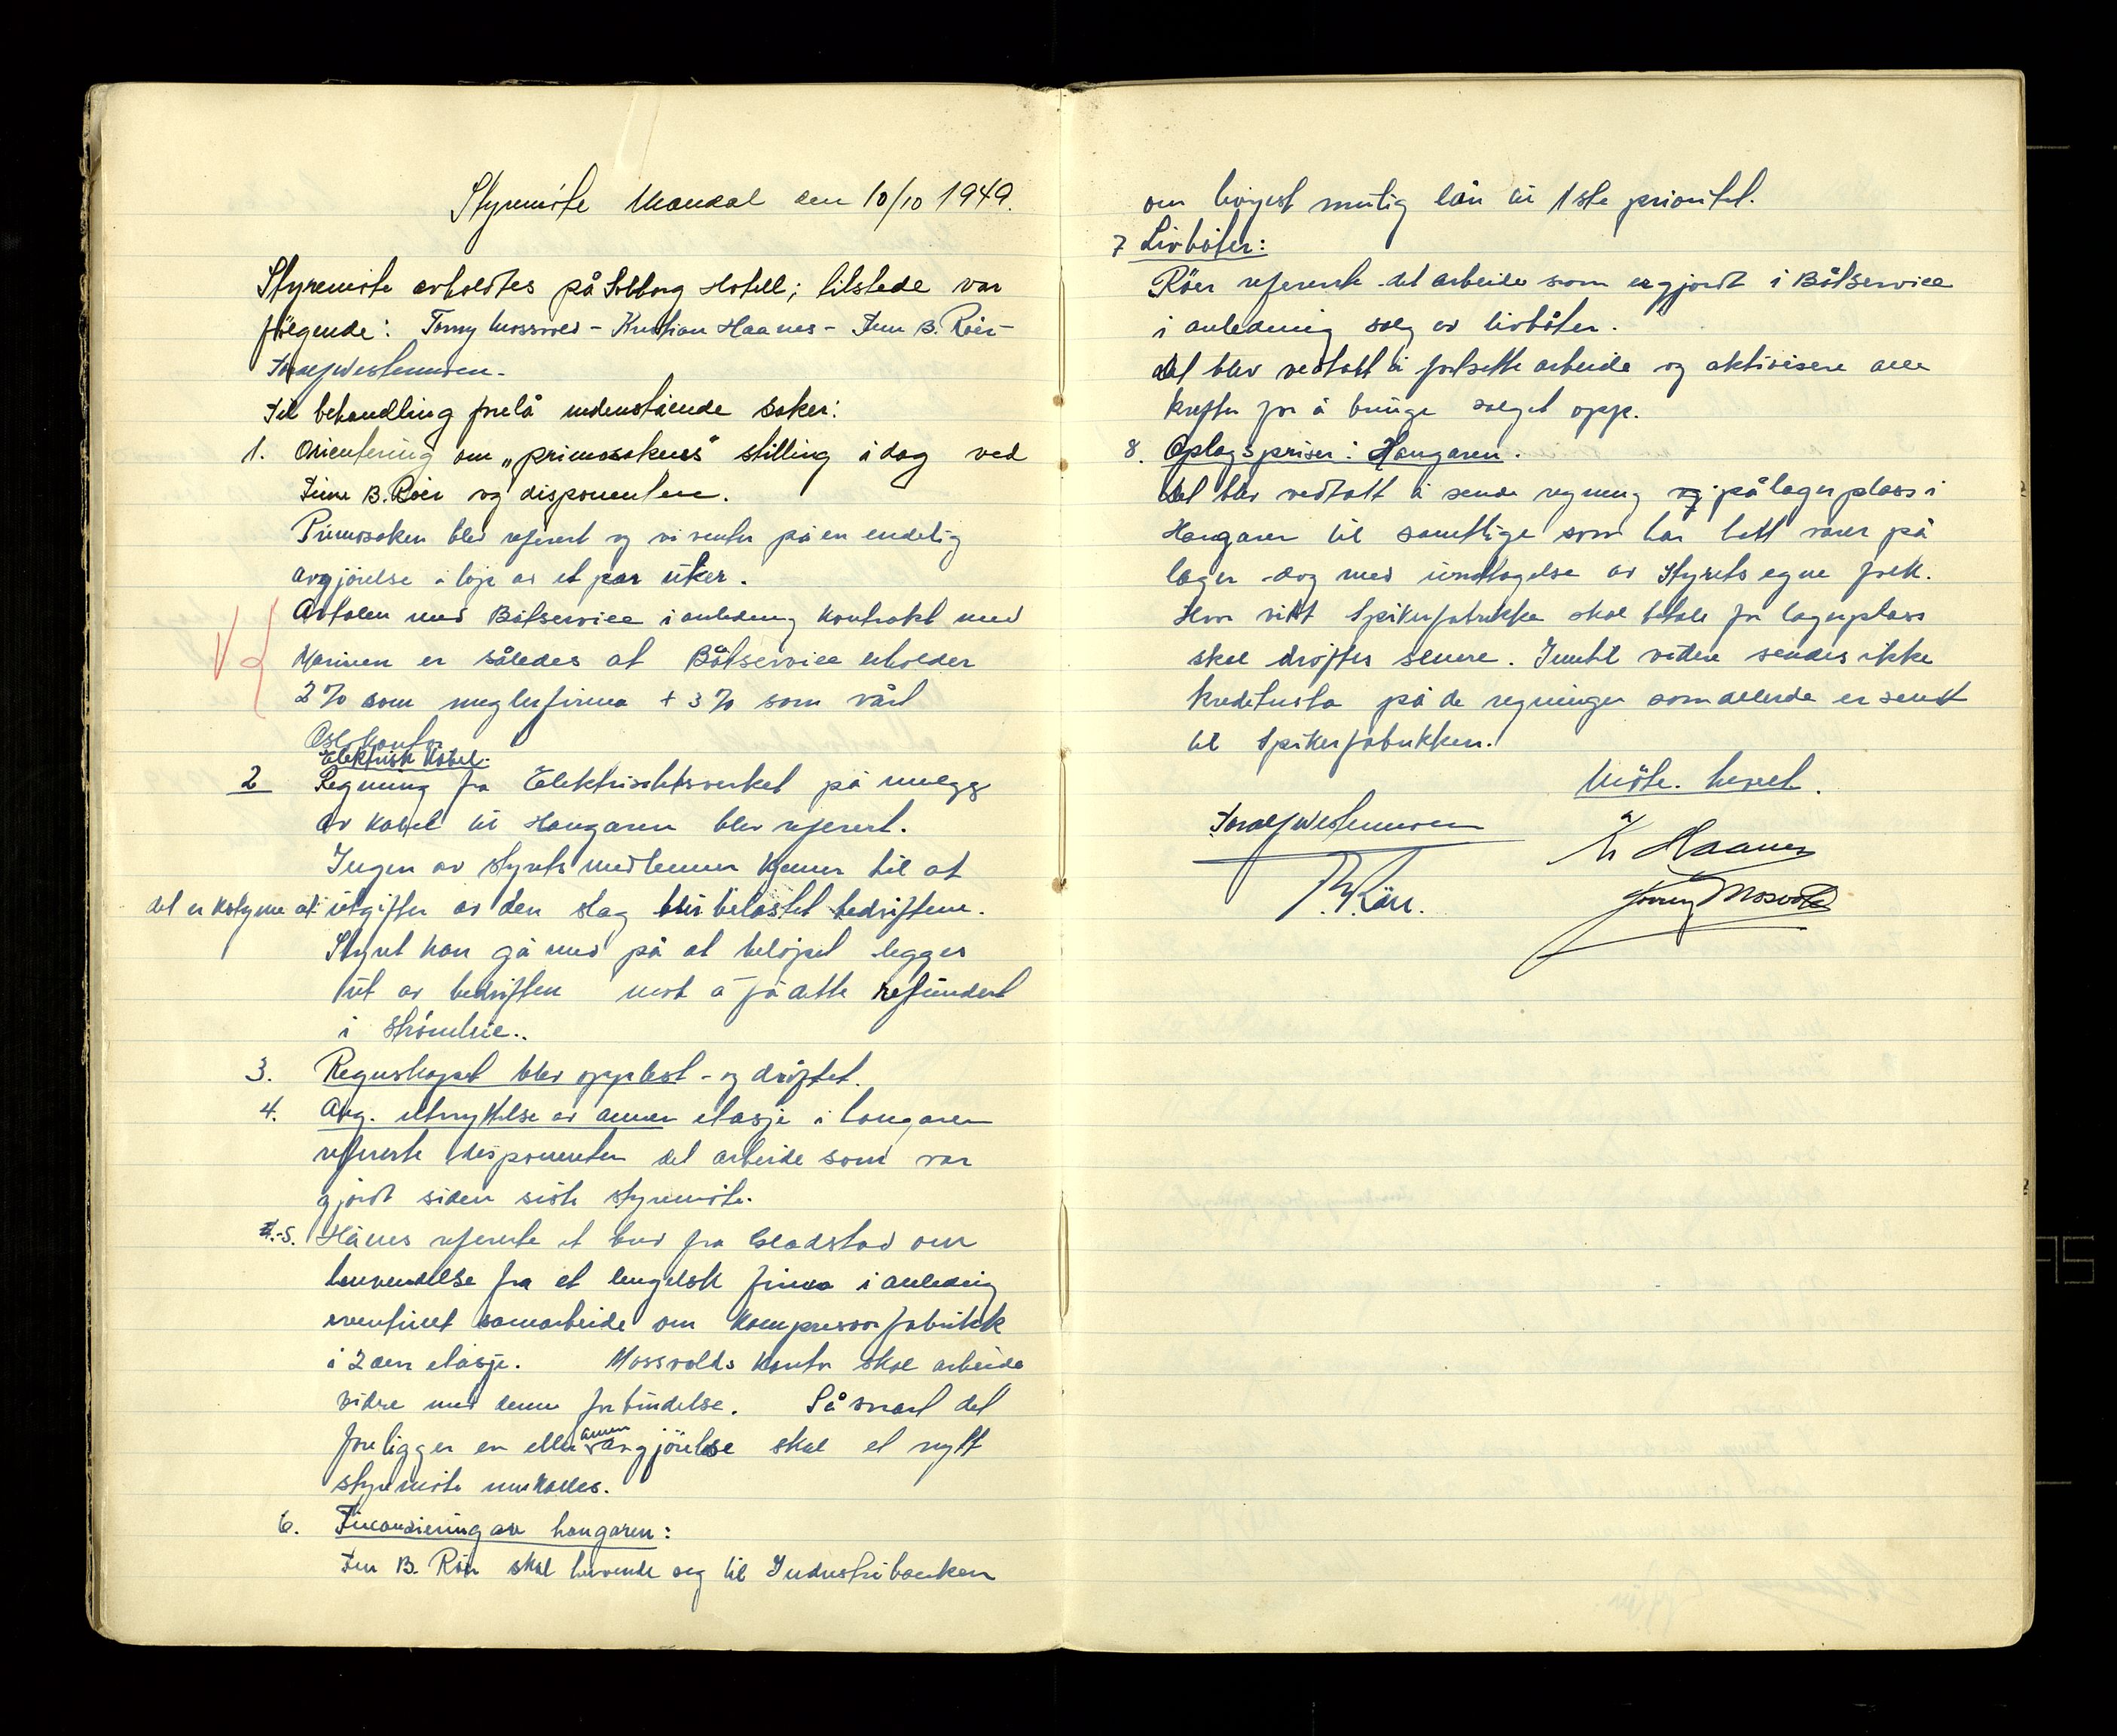 Styremöte Mandal den 10/10 1949.
Styremöte avholdtes på Solborg Hotell; tilstede var
fölgende: Torry Mossvold - Kristian Haanes - Finn B. Röer -
Toralf Westermoen.
Til behandling forelå nedenstående saker:
1. Orientering om „primosakens" stilling idag ved
Finn B. Röer og disponenten.
Primosaken blev referert og vi venter på en endelig
avgjörelse i löpe av et par uker.
Avtalen med Båtservice i anledning kontrakt med
Marinen er således at Båtservice erholder
2% som meglerfirma + 3% som vårt
Oslokontor
Elektrisk kabel:
2 Regning fra Elektrisitetsverket på innlegg
av kabel til Hangaren blev referert.
Ingen av styrets medlemmer kjenner til at
det er kotyme at utgifter av den slag blir belastet bedriftene.
Styret kan gå med på at belöpet legges
ut av bedriften mot å få dette refundert
i strömleie..
3. Regnskapet blev opplest - og dröftet.
4. Ang. utnyttelse av annen etasje i hangaren
refererte disponenten det arbeide som var
gjordt siden siste styremöte.
5. Hånes refererte et brev fra Gladstad om
henvendelse fra et engelsk firma i anledning
eventuelt samarbeide om kompressorfabrikk
i 2 den etasje. Mossvolds kontor skal arbeide
vidre med denne forbindelse. Så snart det
foreligger en eller annen avgjörelse skal et nytt
styremöte innkalles.
6. Finansiering av hangaren:
Finn B. Röer skal henvende seg til Industribanken
om höyest mulig lån til 1ste prioritet.
7 Livbåter:
Röer refererte det arbeide som er gjordt i Båtservice
i anledning salg av livbåter.
Det blev vedtatt å fortsette arbeide og aktivisere alle
krefter for å bringe salget opp.
8. Oplagspriser i Hangaren.
Det blev vedtatt å sende regning på lagerplass i
Hangaren til samtlige som har hatt varer på
lager dog med undtagelse av Styrets egne folk.
Hvor vidt Spikerfabrikken skal betale for lagerplass
skal dröftes senere. Inntil videre sendes ikke
kreditnota på de regninger som allerede er sendt
til Spikerfabrikken.
Möte hevet.
Toralf Westermoen
Kr Haanes
Röer.
Torry Mosvold